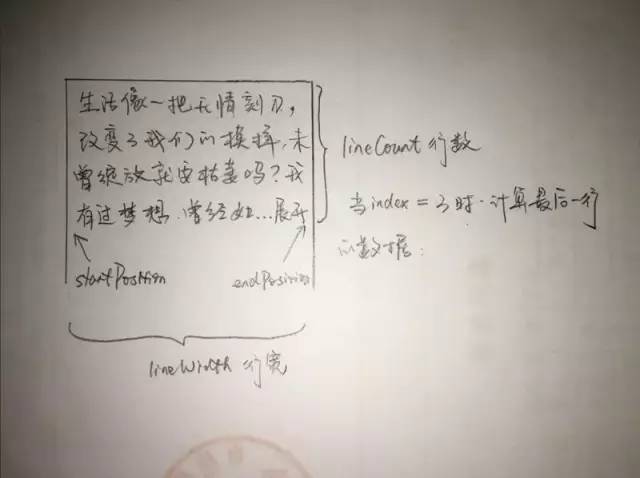 生活像一把无情刻刀,
改变了我们的模样,未
曾绽放就要枯萎吗?我
有过梦想.曾经如...展开
startPosition
endPosition
lineWidth 行宽
lineCount 行数
当index = 3时.计算最后一行
的数据: